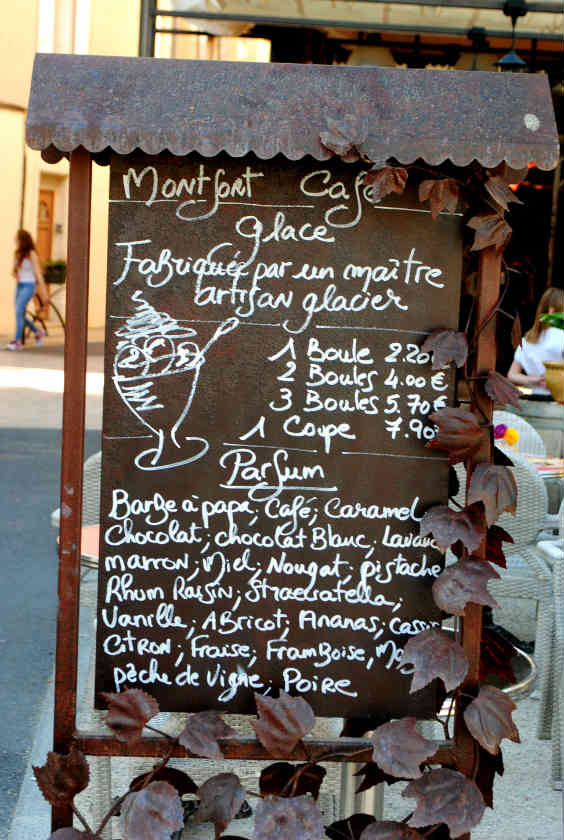 Montfort Café
Glace
Fabriquée par un maître
artisan glacier
1 Boule 2.20
2 Boules 4.00 €
3 Boules 5.70 €
1 Coupe 7.90
Parfum
Barbe à papa; Café; Caramel
Chocolat; chocolat Blanc; Lavande
marron; Miel; Nougat; pistache
Rhum Raisin; Straecratella;
Vanille; Abricot; Ananas; Cassis
Citron; Fraise; Framboise;
pêche de Vigne; Poire